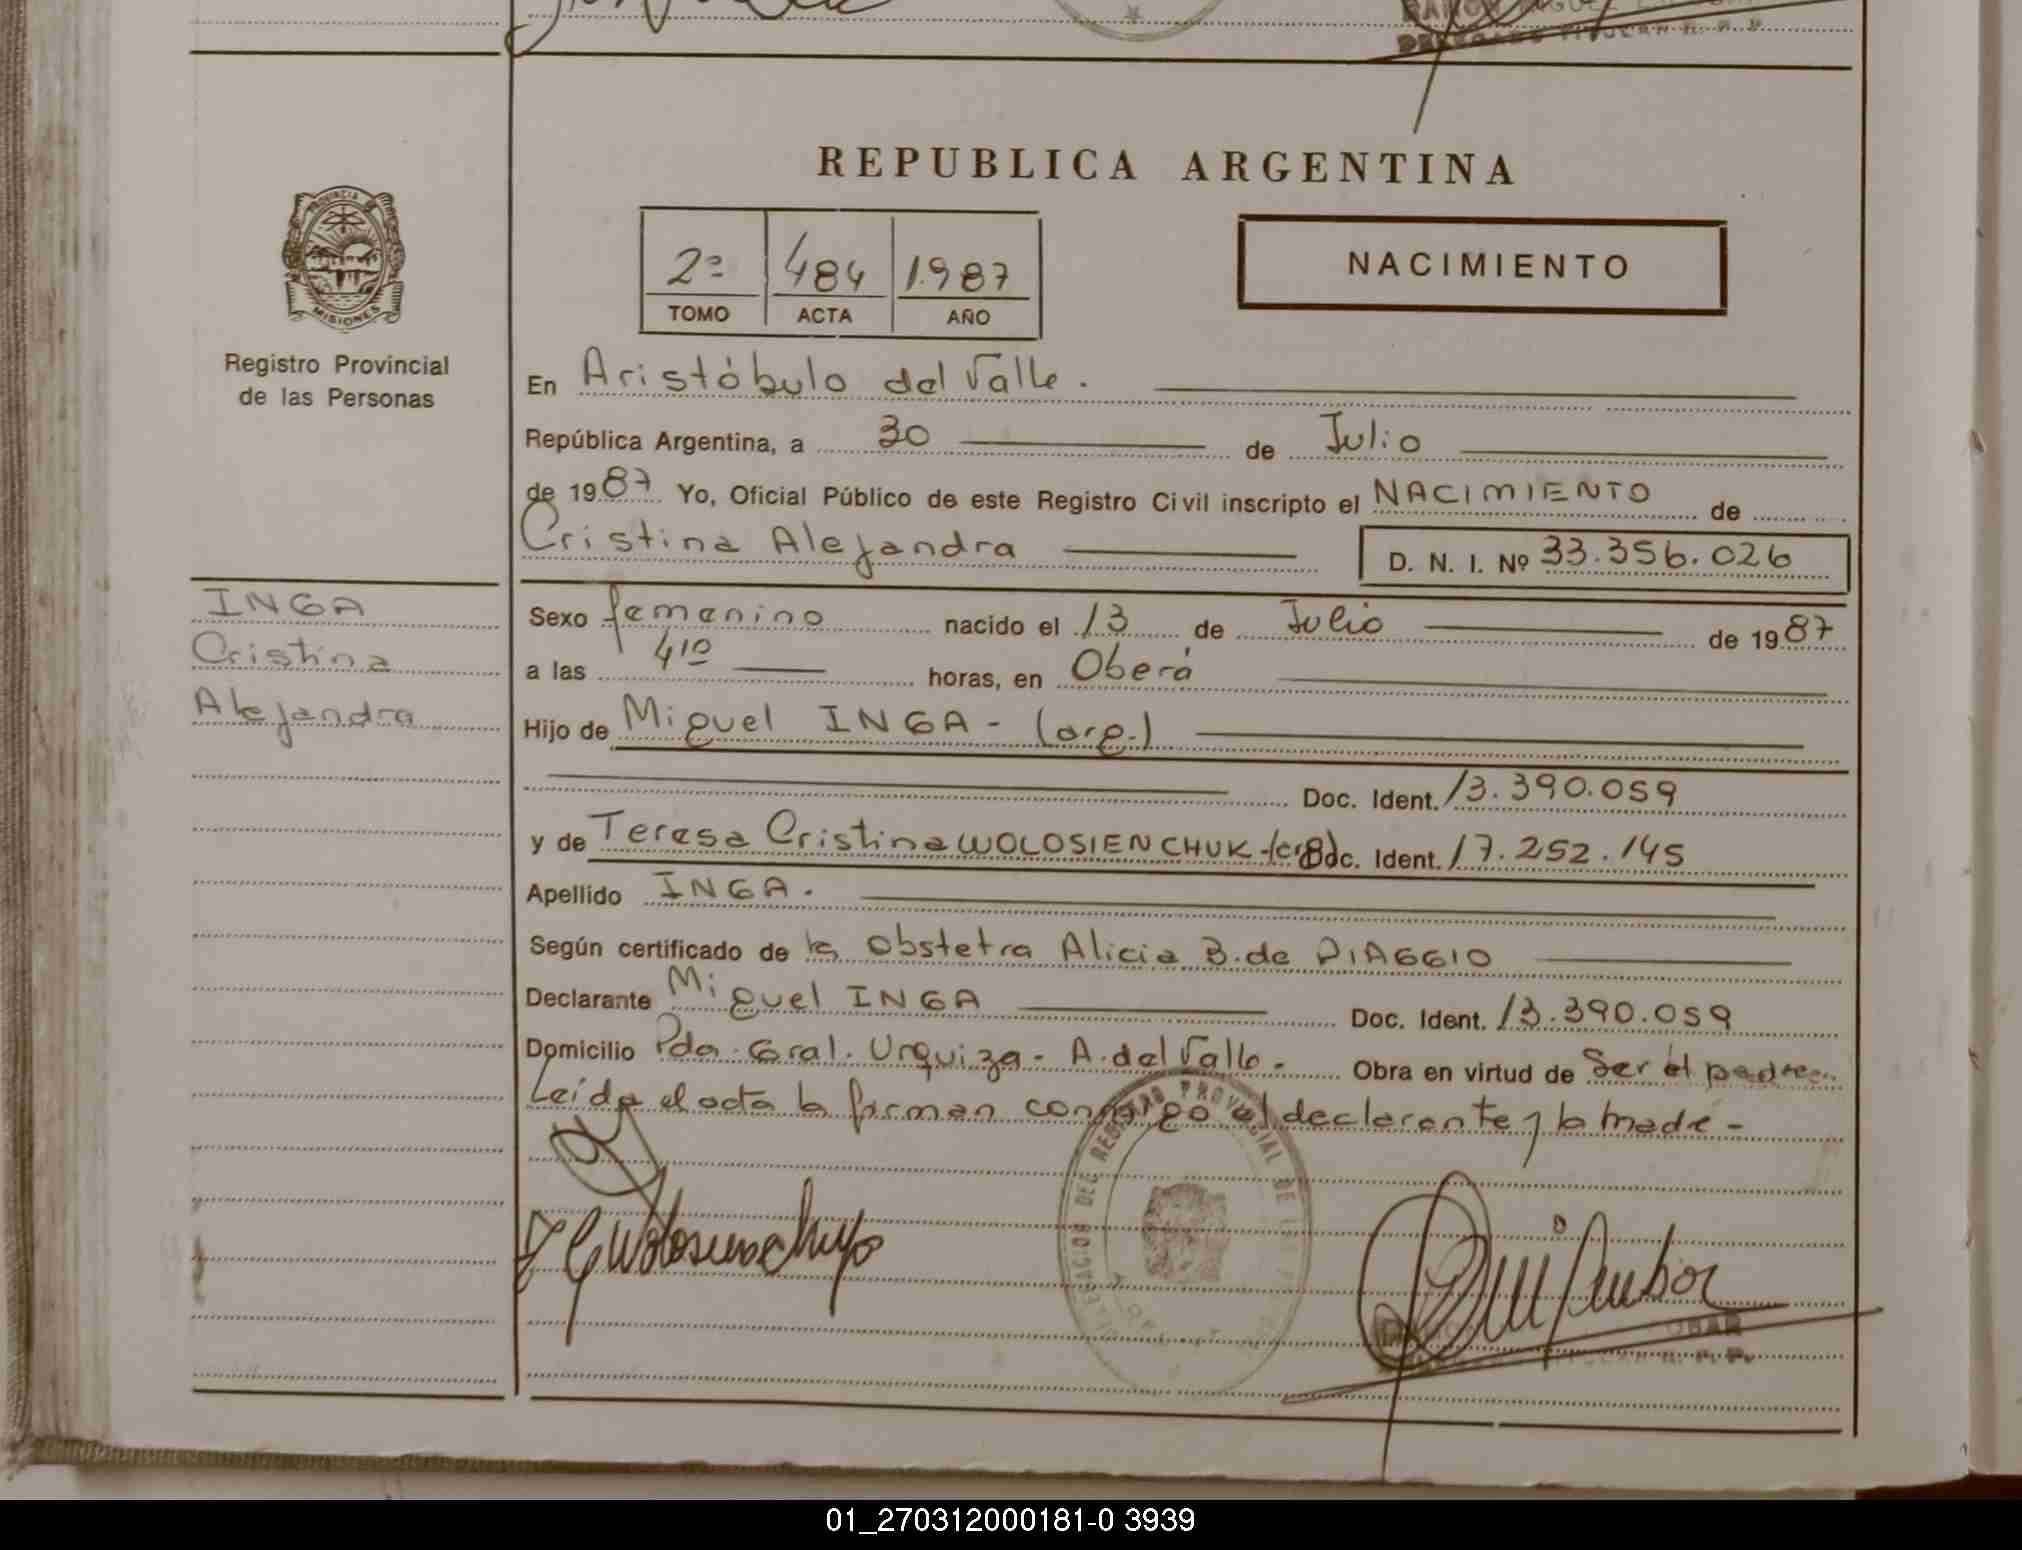 REPUBLICA ARGENTINA
PROVINCIA DE
MISIONES
Registro Provincial
de las Personas
2º 484 1.987
TOMO ACTA AÑO
NACIMIENTO
En Aristóbulo del Valle.
República Argentina, a 30 de Julio
de 1987 Yo, Oficial Público de este Registro Civil inscripto el NACIMIENTO de
Cristina Alejandra D. N. I. Nº 33.356.026
INGA
Cristina
Alejandra
Sexo femenino nacido el 13 de Julio de 1987
a las 410 horas, en Oberá
Hijo de Miguel INGA - (arg.)
Doc. Ident. 13.390.059
y de Teresa Cristina WOLOSIENCHUK - (arg) Doc. Ident. 17.252.145
Apellido INGA.
Según certificado de la Obstetra Alicia B. de DIAGGIO
Declarante Miguel INGA Doc. Ident. 13.390.059
Domicilio Pda. Gral. Urquiza - A. del Valle - Obra en virtud de Ser el padre
Leída el acta la firman conmigo el declarante y la madre -
REGISTRO PROVINCIAL DE
01_270312000181-0 3939